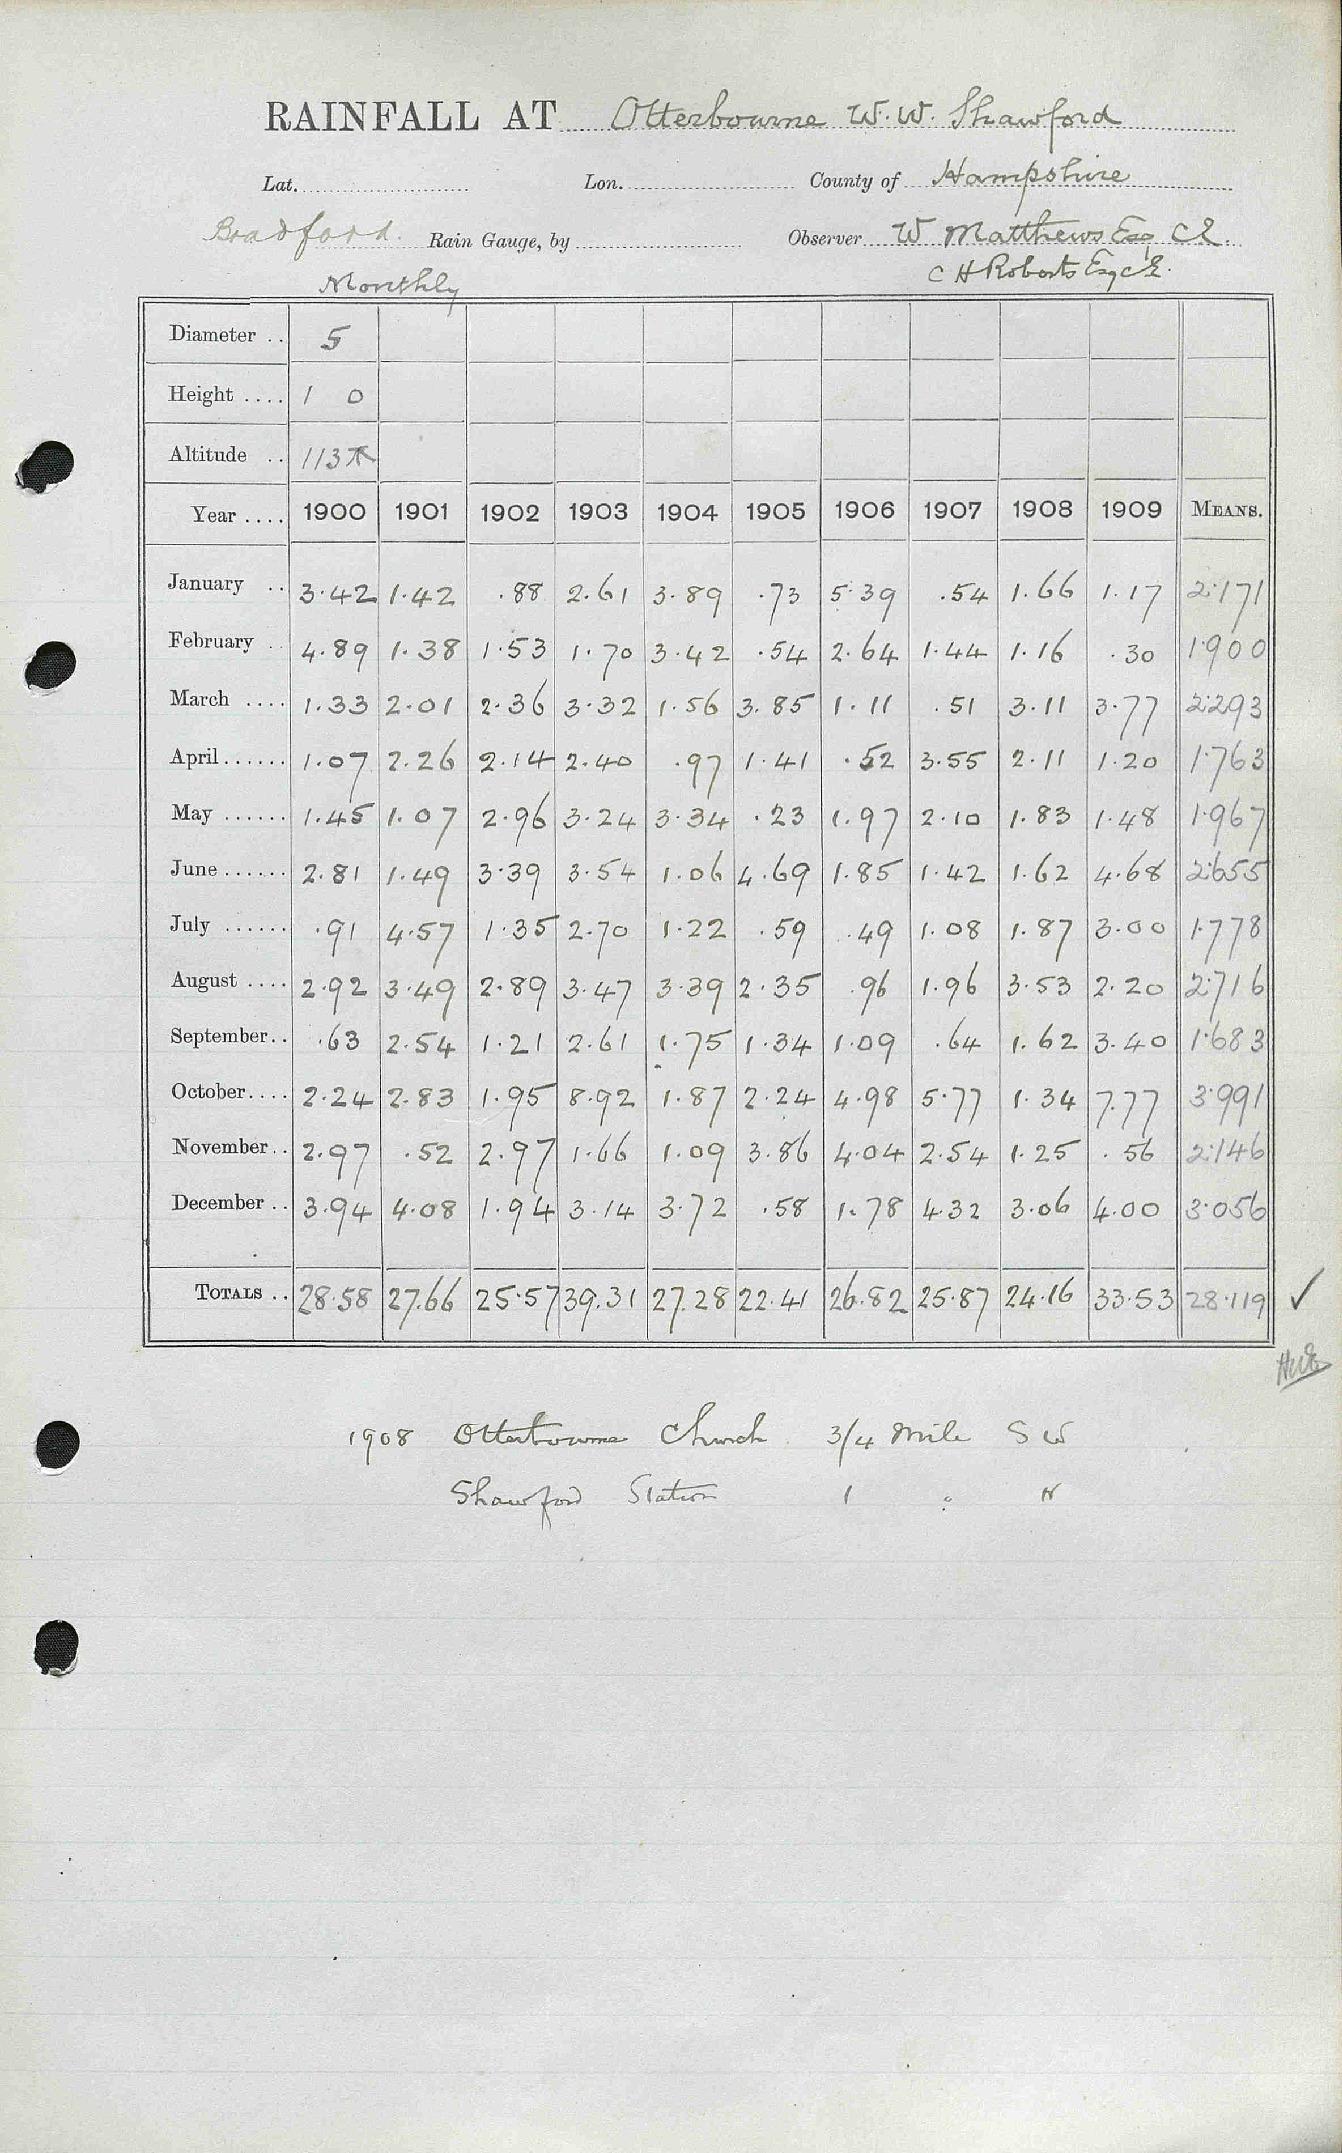 RAINFALL AT Otterbourne W.W. Shawford
Lat. Lon. County of Hampshire
Bradford Rain Gauge, by Observer W Matthews Esq CE.
Monthly C H Roberts Esq CE.
Diameter .. 5
Height .... 1 0
Altitude .. 113
Year .... 1900 1901 1902 1903 1904 1905 1906 1907 1908 1909 MEANS.
January .. 3.42 1.42 .88 2.61 3.89 .73 5.39 .54 1.66 1.17 2.171
February .. 4.89 1.38 1.53 1.70 3.42 .54 2.64 1.44 1.16 .30 1.900
March .... 1.33 2.01 2.36 3.32 1.56 3.85 1.11 .51 3.11 3.77 2.293
April...... 1.07 2.26 2.14 2.40 .97 1.41 .52 3.55 2.11 1.20 1.763
May ...... 1.45 1.07 2.96 3.24 3.34 .23 1.97 2.10 1.83 1.48 1.967
June...... 2.81 1.49 3.39 3.54 1.06 4.69 1.85 1.42 1.62 4.68 2.655
July ...... .91 4.57 1.35 2.70 1.22 .59 .49 1.08 1.87 3.00 1.778
August .... 2.92 3.49 2.89 3.47 3.39 2.35 .96 1.96 3.53 2.20 2.716
September.. .63 2.54 1.21 2.61 1.75 1.34 1.09 .64 1.62 3.40 1.683
October.... 2.24 2.83 1.95 8.92 1.87 2.24 4.98 5.77 1.34 7.77 3.991
November.. 2.97 .52 2.97 1.66 1.09 3.86 4.04 2.54 1.25 .56 2.146
December .. 3.94 4.08 1.94 3.14 3.72 .58 1.78 4.32 3.06 4.00 3.056
TOTALS .. 28.58 27.66 25.57 39.31 27.28 22.41 26.82 25.87 24.16 33.53 28.119 ✓
1908 Otterbourne Church 3/4 Mile S W
Shawford Station 1 " N